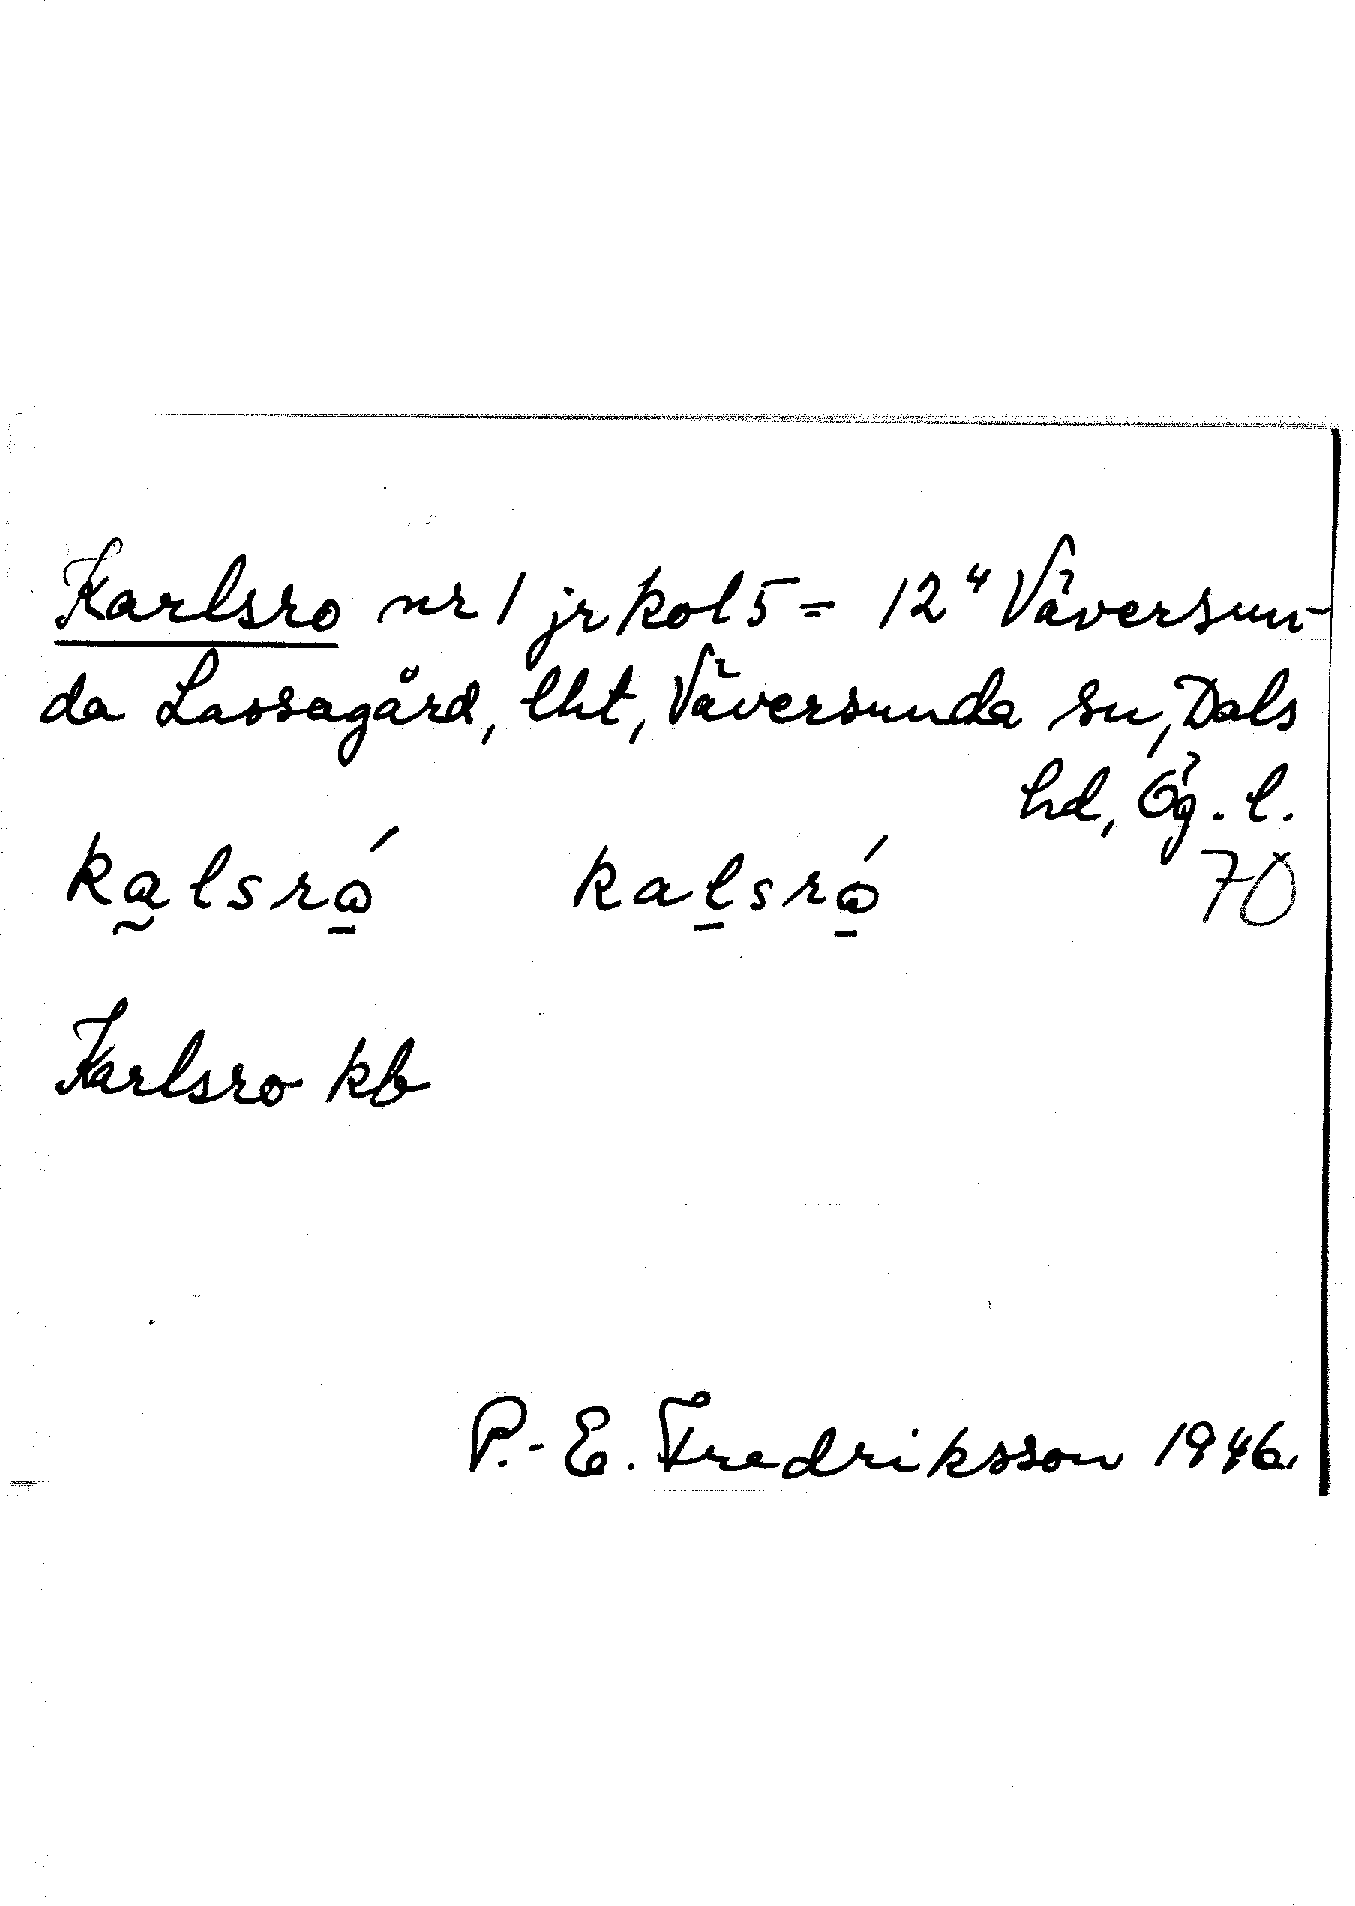 Karlsro nr 1 jrkol 5 = 12⁴ Väversun-
da Lassagård, lht, Väversunda sn, Dals
hd, Ög. l.
ka̰lsrώ̲ kal̲srώ̲ 70
Karlsro kb
P.-E. Fredriksson 1946.